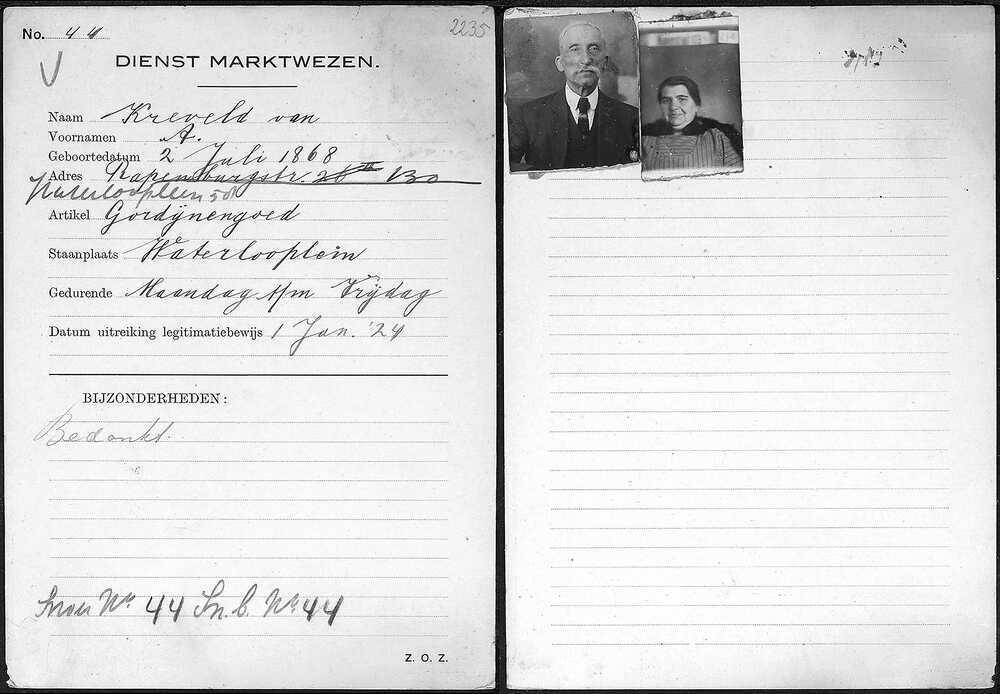 No. 44
2235
DIENST MARKTWEZEN.
Naam Kreveld van
Voornamen A.
Geboortedatum 2 Juli 1868
Adres Rapenburgstr. 130
Waterlooplein 50
Artikel Gordijnengoed
Staanplaats Waterlooplein
Gedurende Maandag t/m Vrijdag
Datum uitreiking legitimatiebewijs 1 Jan. '24
BIJZONDERHEDEN:
Bedankt.
No 44 No 44
Z. O. Z.